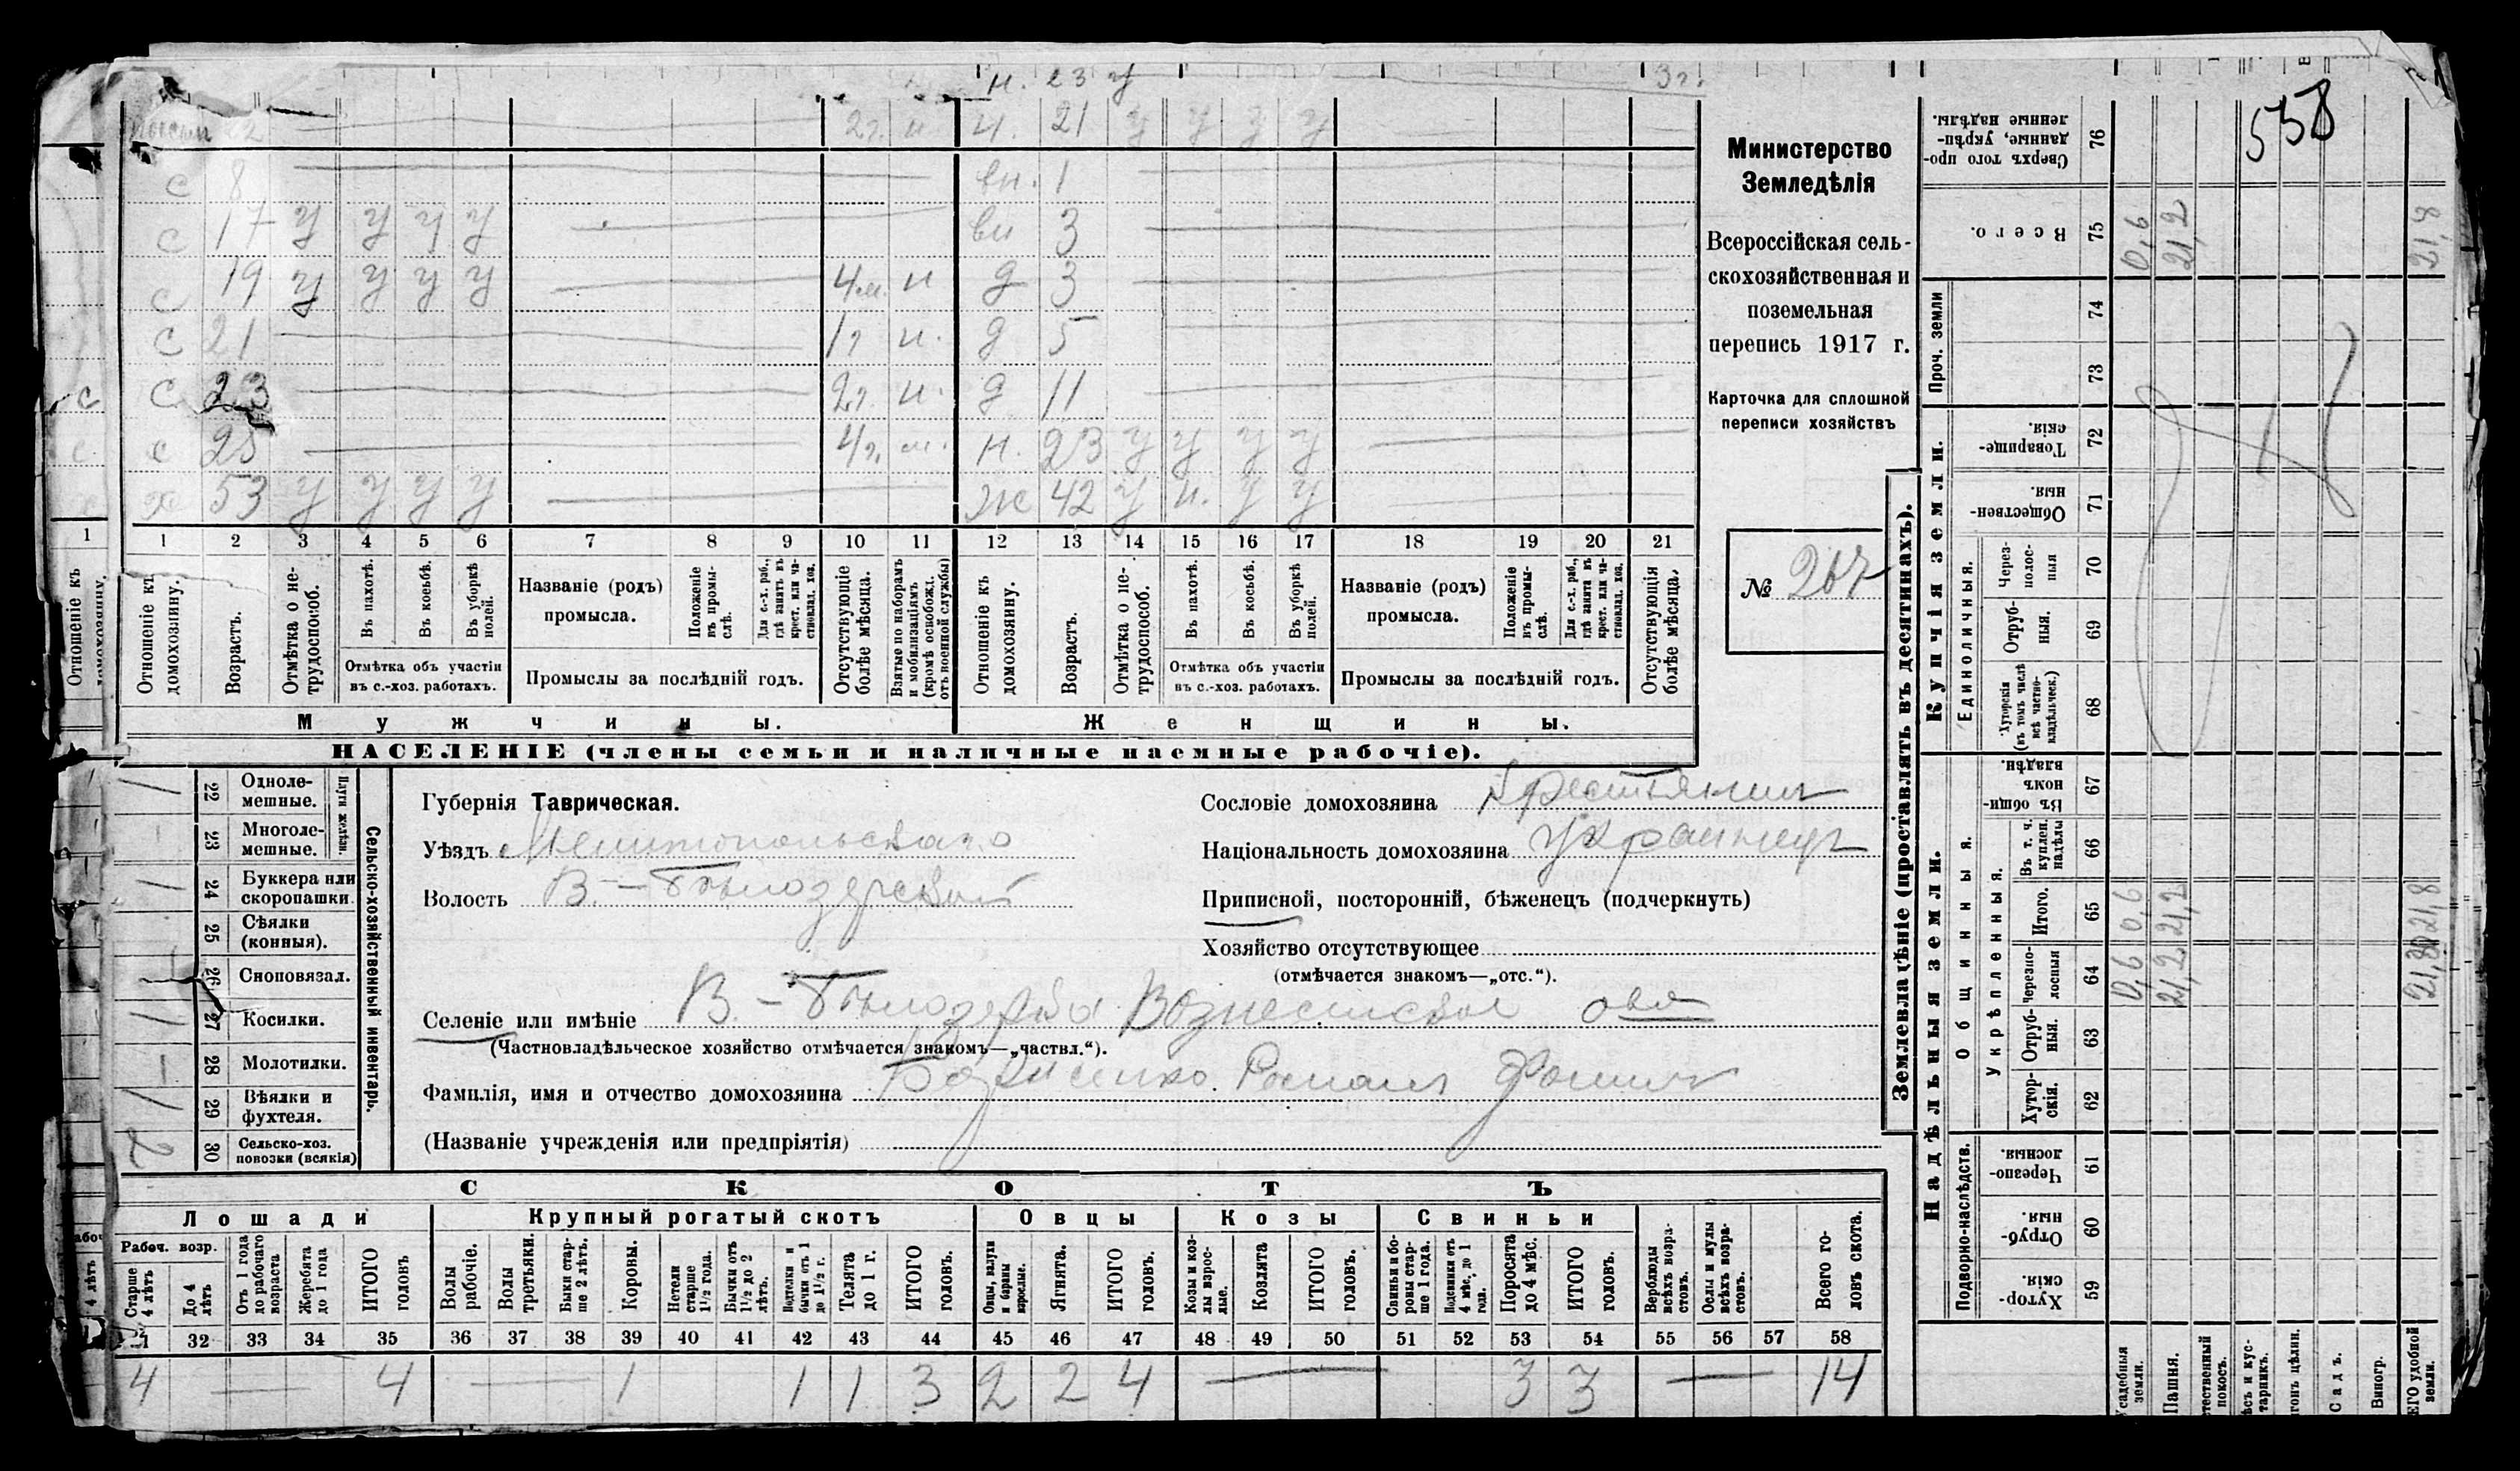 н. 23 у 3 г.
2 2 г. н. н. 21 у у у у
с 8 вн. 1
с 17 у у у у вн 3
с 19 у у у у 4 м. н д 3
с 21 1 г н. д 5
с 23 2 г. н. д 11
с 25 4 г. н. н. 23 у у у у
х 53 у у у у ж 42 у н. у у
1 2 3 4 5 6 7 8 9 10 11 12 13 14 15 16 17 18 19 20 21
Отношеніе къ домохозяину.
Возрастъ.
Отмѣтка о не-трудоспособ.
Въ пахотѣ.
Въ косьбѣ.
Въ уборкѣ полей.
Отмѣтка объ участіи
въ с.-хоз. работахъ.
Названіе (родъ)
промысла.
Положеніе въ промы-слѣ.
Для с.-х. раб., гдѣ занятъ въ крест. или ча-стновлад. хоз.
Промыслы за послѣдній годъ.
Отсутствующіе болѣе мѣсяца.
Взятые по наборамъ и мобилизаціямъ (кромѣ освобожд. отъ военной службы)
Отношеніе къ домохозяину.
Возрастъ.
Отмѣтка о не-трудоспособ.
Въ пахотѣ.
Въ косьбѣ.
Въ уборкѣ полей.
Отмѣтка объ участіи
въ с.-хоз. работахъ.
Названіе (родъ)
промысла.
Положеніе въ промы-слѣ.
Для с.-х. раб., гдѣ занятъ въ крест. или ча-стновлад. хоз.
Промыслы за послѣдній годъ.
Отсутствующія болѣе мѣсяца.
Мужчины. Женщины.
НАСЕЛЕНІЕ (члены семьи и наличные наемные рабочіе).
Министерство
Земледѣлія
Всероссійская сель-
скохозяйственная и
поземельная
перепись 1917 г.
Карточка для сплошной
переписи хозяйствъ
№ 267
Сельско-хозяйственный инвентарь.
Плуги желѣзн.
1 22 Одноле-мешные.
23 Многоле-мешные.
1 24 Буккера или скоропашки.
25 Сѣялки (конныя).
26 Сноповязал.
1 27 Косилки.
28 Молотилки.
1 29 Вѣялки и фухтеля.
2 30 Сельско-хоз. повозки (всякія)
Губернія Таврическая.
Уѣздъ Мелитопольскаго
Волость В.-Бѣлозерской
Сословіе домохозяина крестьянин
Національность домохозяина украинец
Приписной, посторонній, бѣженецъ (подчеркнуть)
Хозяйство отсутствующее
(отмѣчается знакомъ—„отс.“).
Селеніе или имѣніе В.-Бѣлозерка Вознесенское ова
(Частновладѣльческое хозяйство отмѣчается знакомъ—„частвл.“).
Фамилія, имя и отчество домохозяина Борисенко Роман Фомич
(Названіе учрежденія или предпріятія)
СКОТЪ
Лошади Крупный рогатый скотъ Овцы Козы Свиньи
Рабоч. возр.
Старше 4 лѣтъ
До 4 лѣтъ
Отъ 1 года до рабочаго возраста
Жеребята до 1 года
ИТОГО головъ
Волы рабочіе.
Волы третьяки.
Быки стар-ше 2 лѣтъ.
Коровы.
Нетели старше 1½ года.
Бычки отъ 1½ до 2 лѣтъ.
Подтелки и бычки отъ 1 до 1½ г.
Телята до 1 г.
ИТОГО головъ.
Овцы, валухи и бараны взрослые.
Ягнята.
ИТОГО головъ.
Козы и коз-лы взрос-лые.
Козлята
ИТОГО головъ.
Свиньи и бо-ровы стар-ше 1 года.
Подсвинки отъ 4 мѣс. до 1 года.
Поросята до 4 мѣс.
ИТОГО головъ.
Верблюды всѣхъ возра-стовъ.
Ослы и мулы всѣхъ возра-стовъ.
Всего го-ловъ скота.
32 33 34 35 36 37 38 39 40 41 42 43 44 45 46 47 48 49 50 51 52 53 54 55 56 57 58
4 4 1 1 1 3 2 2 4 3 3 14
Землевладѣніе (проставлять въ десятинахъ).
538
Сверхъ того про-данные, укрѣп-ленные надѣлы. 76
Всего. 75 0,6 21,2 21,8
Проч. земли 74 73
Купчія земли.
Товарище-скія. 72
Обществен-ныя. 71
Единоличныя.
Через-полос-ныя 70
Отруб-ныя. 69
Хуторскія (въ томъ числѣ всѣ частно-владѣльческ.) 68
Надѣльныя земли.
Общинныя.
Въ общи-номъ владѣн. 67
Укрѣпленныя.
Въ т. ч. куплен. надѣлы 66
Итого. 65 0,6 21,2 21,8
Черезпо-лосныя 64 0,6 21,2 21,8
Отруб-ныя. 63
Хутор-скія. 62
Подворно-наслѣдств.
Черезпо-лосныя 61
Отруб-ныя. 60
Хутор-скія. 59
Усадебныя земли.
Пашня.
Садъ.
Виногр.
удобной земли.